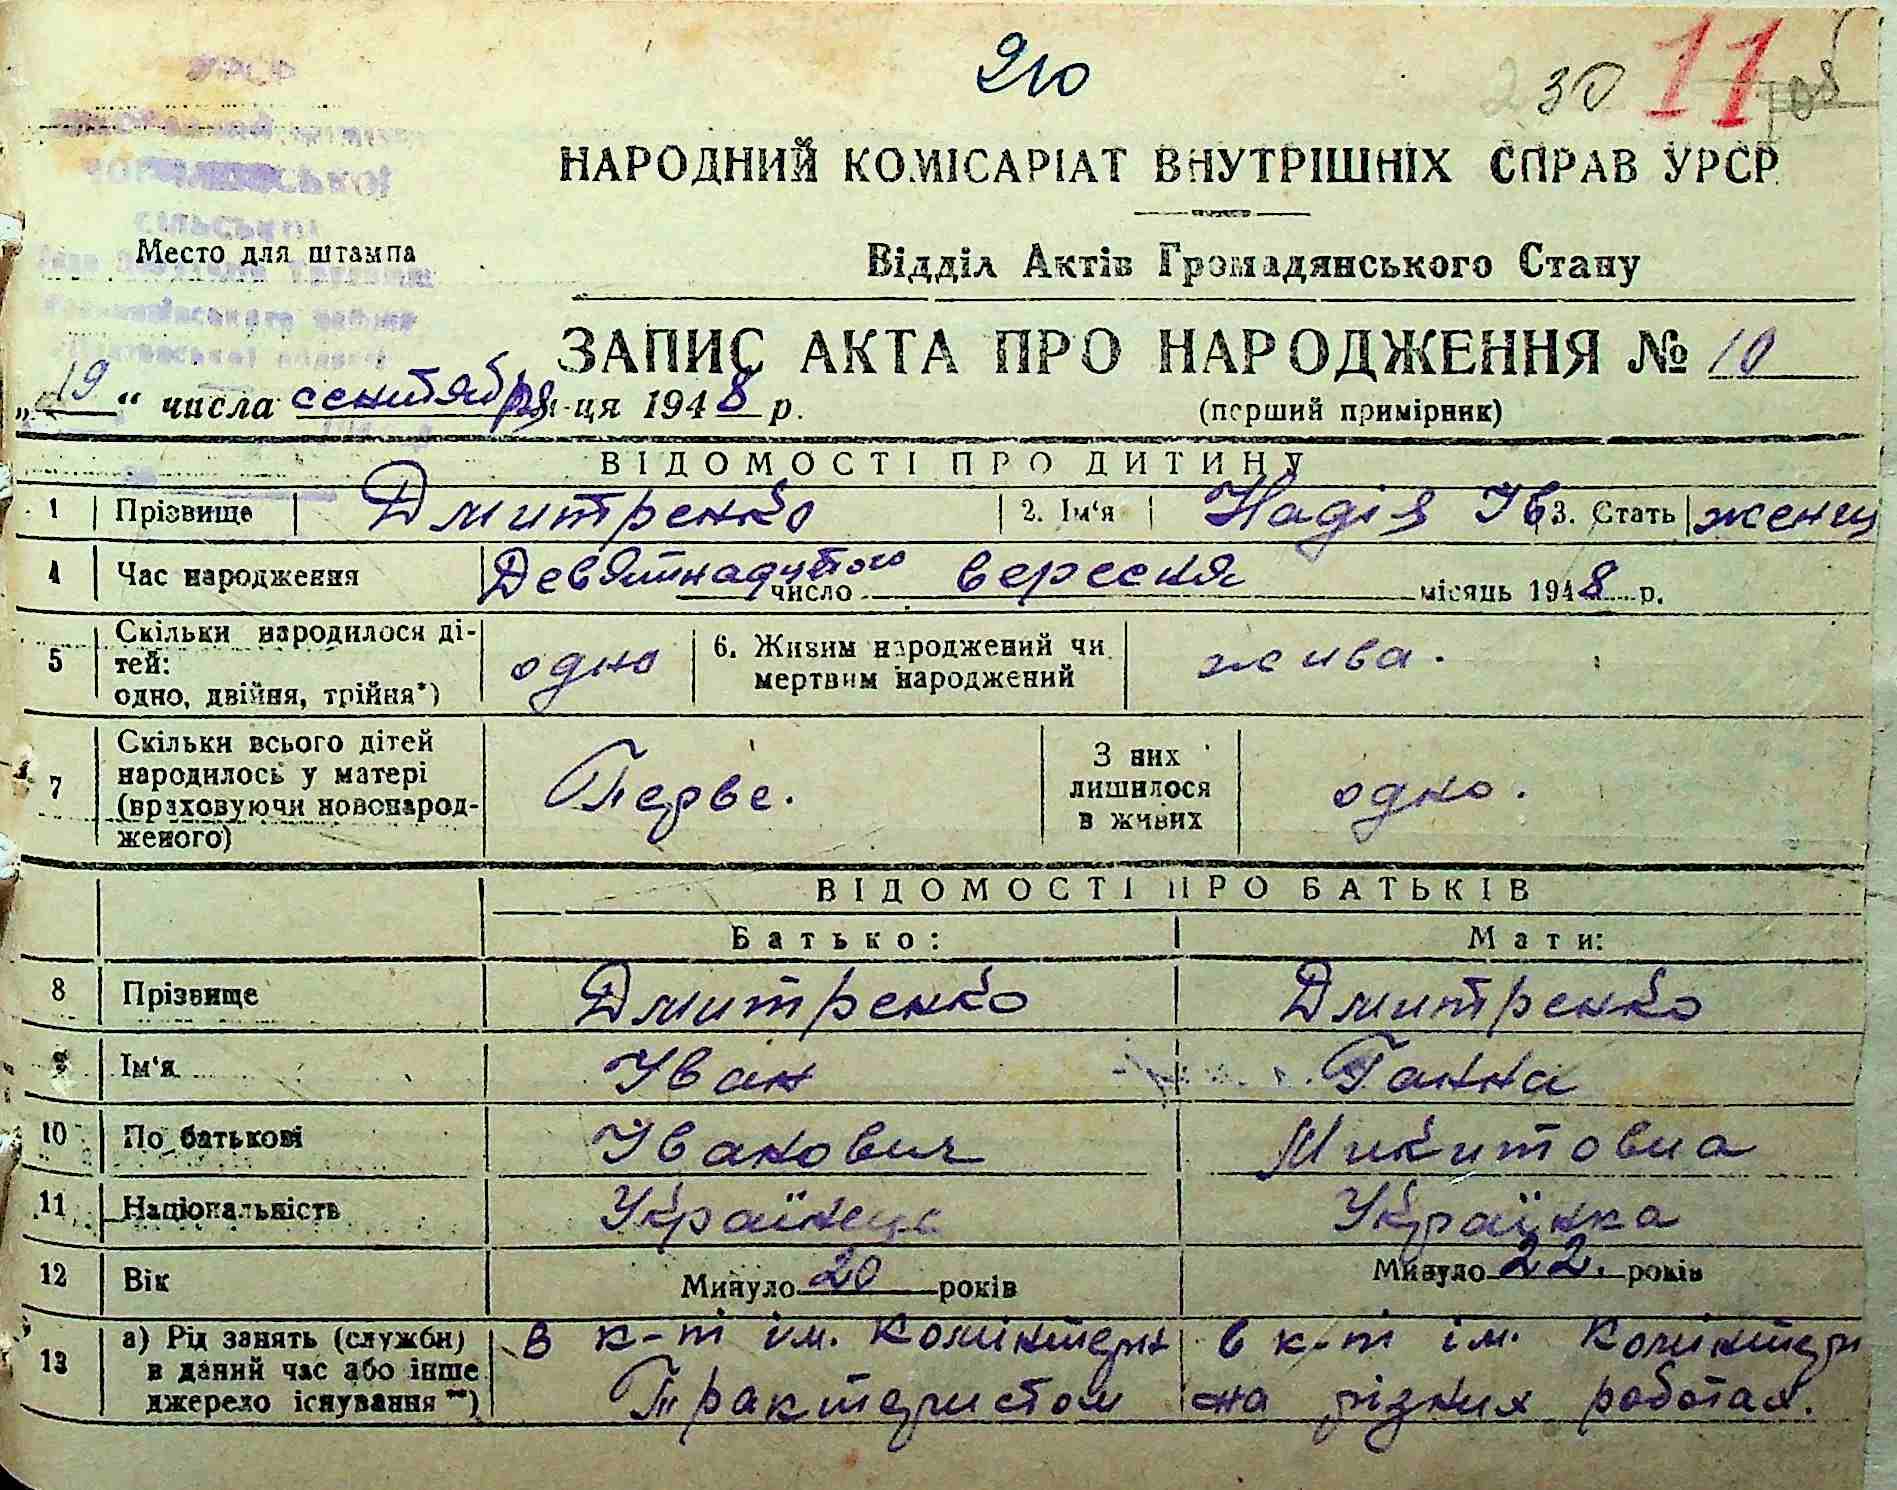 210
30 11
НАРОДНИЙ КОМІСАРІАТ ВНУТРІШНІХ СПРАВ УРСР
СІЛЬСЬКОЇ
Место для штампа
Відділ Актів Громадянського Стану
ЗАПИС АКТА ПРО НАРОДЖЕННЯ № 10
„19“ числа сентября м-ця 1948 р.
(перший примірник)
ВІДОМОСТІ ПРО ДИТИНУ
1 Прізвище Дмитренко 2. Ім‘я Надія Ів 3. Стать женщ
4 Час народження Девятнадцятого число вересня місяць 1948 р.
5 Скільки народилося ді-
тей:
одно, двійня, трійня*) одно 6. Живим народжений чи
мертвим народжений жива.
7 Скільки всього дітей
народилось у матері
(враховуючи новонарод-
женого) Перве. З них
лишилося
в живих одно.
ВІДОМОСТІ ПРО БАТЬКІВ
Батько: Мати:
8 Прізвище Дмитренко Дмитренко
9 Ім‘я Іван Ганна
10 По батькові Іванович Микитовна
11 Національність Українець Українка
12 Вік Минуло 20 років Минуло 22. років
13 а) Рід занять (служби)
в даний час або інше
джерело існування **) в к-т ім. Комінтерн в к-т ім. Комінтерн
Трактористом на різних роботах.